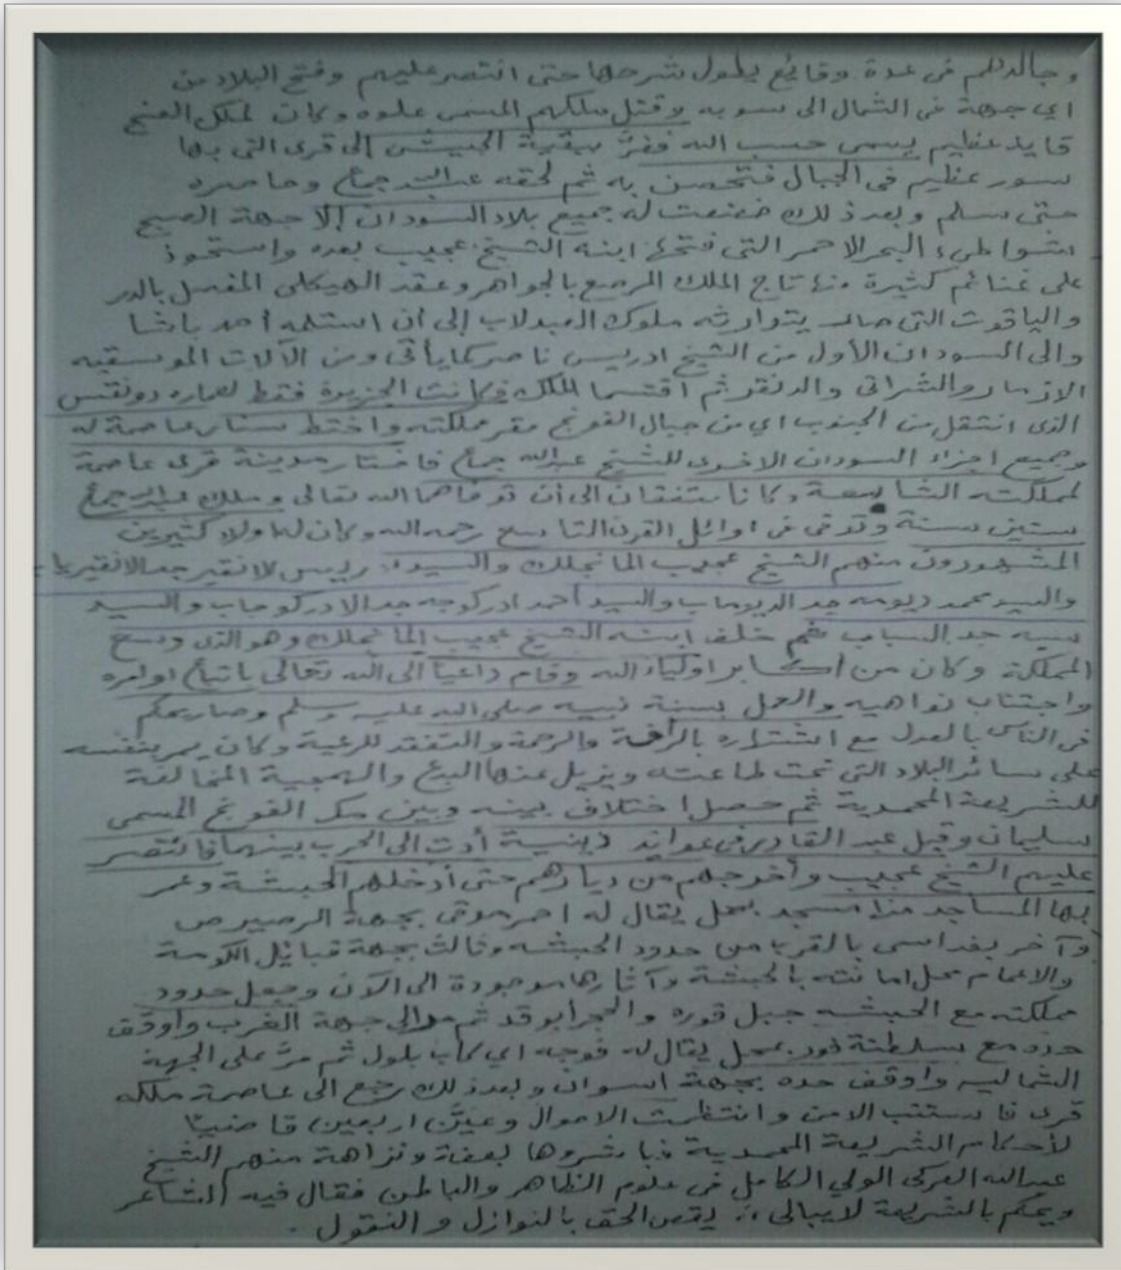 وجالدهم فى عدة وقائع يطول شرحها حتى انتصر عليهم وفتح البلاد من
اي جهة فى الشمال الى سوبه وقتل ملكهم المسمى علوه وكان لملك العنج
قايد عظيم يسمى حسب الله ففرَّ ببقية الجيش إلى قرى التى بها
سور عظيم فى الجبال فتحصن به ثم لحقه عبدالله جماع وحاصره
حتى سلم وبعد ذلك خضعت له جميع بلاد السودان إلا جهة
شواطىء البحر الاحمر التى فتحها ابنه الشيخ عجيب بعده واستحوذ
على غنائم كثيرة منها تاج الملك المرصع بالجواهر وعقد الهيكلى المفصل بالدر
والياقوت التى صار يتوارثه ملوك العبدلاب إلى أن استلمه احمد باشا
والى السودان الأول من الشيخ ادريس ناصر كما يأتى ومن الآلات الموسيقيه
الازمار والشراتى والدنقر ثم اقتسما الملك فكانت الجزيرة فقط لعماره دونقس
الذى انتقل من الجنوب اي من جبال الفونج مقر مملكته واختط سنار عاصمة له
وجميع اجزاء السودان الاخرى للشيخ عبدالله جماع فاختار مدينة قرى عاصمة
لمملكته الشاسعة وكانا متفقان الى أن توفاهما الله تعالى وملك عبدالله جماع
ستين سنة وتوفى فى اوائل القرن التاسع رحمه الله وكان له اولاد كثيرين
المشهورون منهم الشيخ عجيب المانجلك والسيد ادريس لانقير جد الانقيرياب
والسيد محمد ديومه جد الديوماب والسيد أحمد ادركوجه جد الادركوجاب والسيد
سبه جد السباب ثم خلف ابنه الشيخ عجيب المانجلك وهو الذى وسع
المملكة وكان من أكابر اولياء الله وقام داعياً الى الله تعالى باتباع اوامره
واجتناب نواهيه والعمل بسنة نبيه صلى الله عليه وسلم وصار يحكم
فى الناس بالعدل مع اشتهاره بالرأفة والرحمة والتفقد للرعية وكان يمر بنفسه
على سائر البلاد التى تحت طاعته ويزيل عنها البدع والهمجية المخالفة
للشريعة المحمدية ثم حصل اختلاف بينه وبين مك الفونج المسمى
سليمان وقيل عبد القادر فى عوايد دينية أدت الى الحرب بينهما فانتصر
عليهم الشيخ عجيب وأخرجهم من ديارهم حتى أدخلهم الحبشة وعمر
بها المساجد منها مسجد بمحل يقال له احمر موقى بجهة الرصيرص
وآخر بفداسى بالقرب من حدود الحبشه وثالث بجهة قبائل الكومة
والاعمام محل اماتته بالحبشة وآثارها موجودة الى الآن وجعل حدود
مملكته مع الحبشه جبل قوره والحجر ابوقد ثم مرَّ الى جهة الغرب واوقف
حده مع سلطنة فور بمحل يقال له فوجه اي كاب بلول ثم مرَّ على الجهة
الشماليه واوقف حده بجهة اسوان وبعد ذلك رجع الى عاصمة ملكه
قرى فاستتب الامن وانتظمت الاموال وعيَّن اربعين قاضياً
لأحكام الشريعة المحمدية فباشروها بعفة ونزاهة منهم الشيخ
عبدالله العركى الولي الكامل فى علوم الظاهر والباطن فقال فيه الشاعر
ويحكم بالشريعة لايبالى ∴ يقص الحق بالنوازل والنقول .